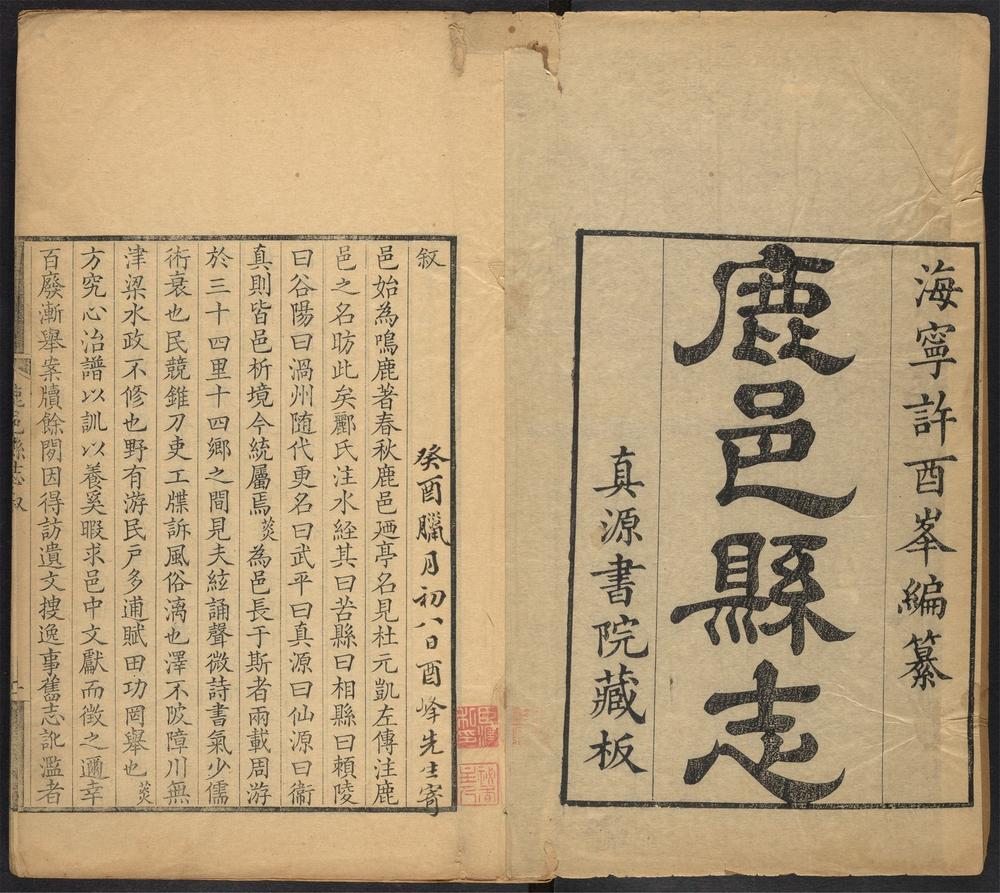 海寧許酉峯編纂
鹿邑縣志
真源書院藏板
敘
癸酉臘月初八日酉峰先生寄
邑始為鳴鹿著春秋鹿邑廼亭名見杜元凱左傳注鹿
邑之名昉此矣酈氏注水經其曰苦縣曰相縣曰賴陵
曰谷陽曰渦州隨代更名曰武平曰真源曰仙源曰衞
真則皆邑析境今統屬焉菼為邑長于斯者兩載周游
於三十四里十四鄉之間見夫絃誦聲微詩書氣少儒
術衰也民競錐刀吏工牒訴風俗漓也澤不陂障川無
津梁水政不修也野有游民戶多逋賦田功罔舉也菼
方究心治譜以訓以養奚暇求邑中文獻而徵之邇幸
百廢漸舉案牘餘閒因得訪遺文搜逸事舊志訛濫者
鹿邑縣志 敘